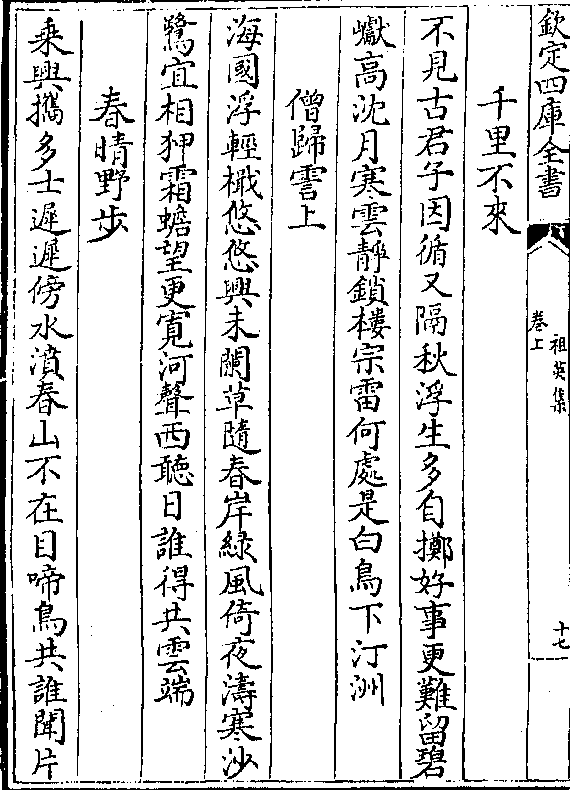 欽定四庫全書
祖英集
卷上
十七
千里不來
不見古君子因循又隔秋浮生多自擲好事更難留碧
巘高沈月寒雲靜鎖樓宗雷何處是白鳥下汀洲
僧歸霅上
海國浮輕檝悠悠興未闌草隨春岸綠風倚夜濤寒沙
鷺宜相狎霜蟾望更寛河聲西聽日誰得共雲端
春晴野步
乘興攜多士遲遲傍水濆春山不在目啼鳥共誰聞片